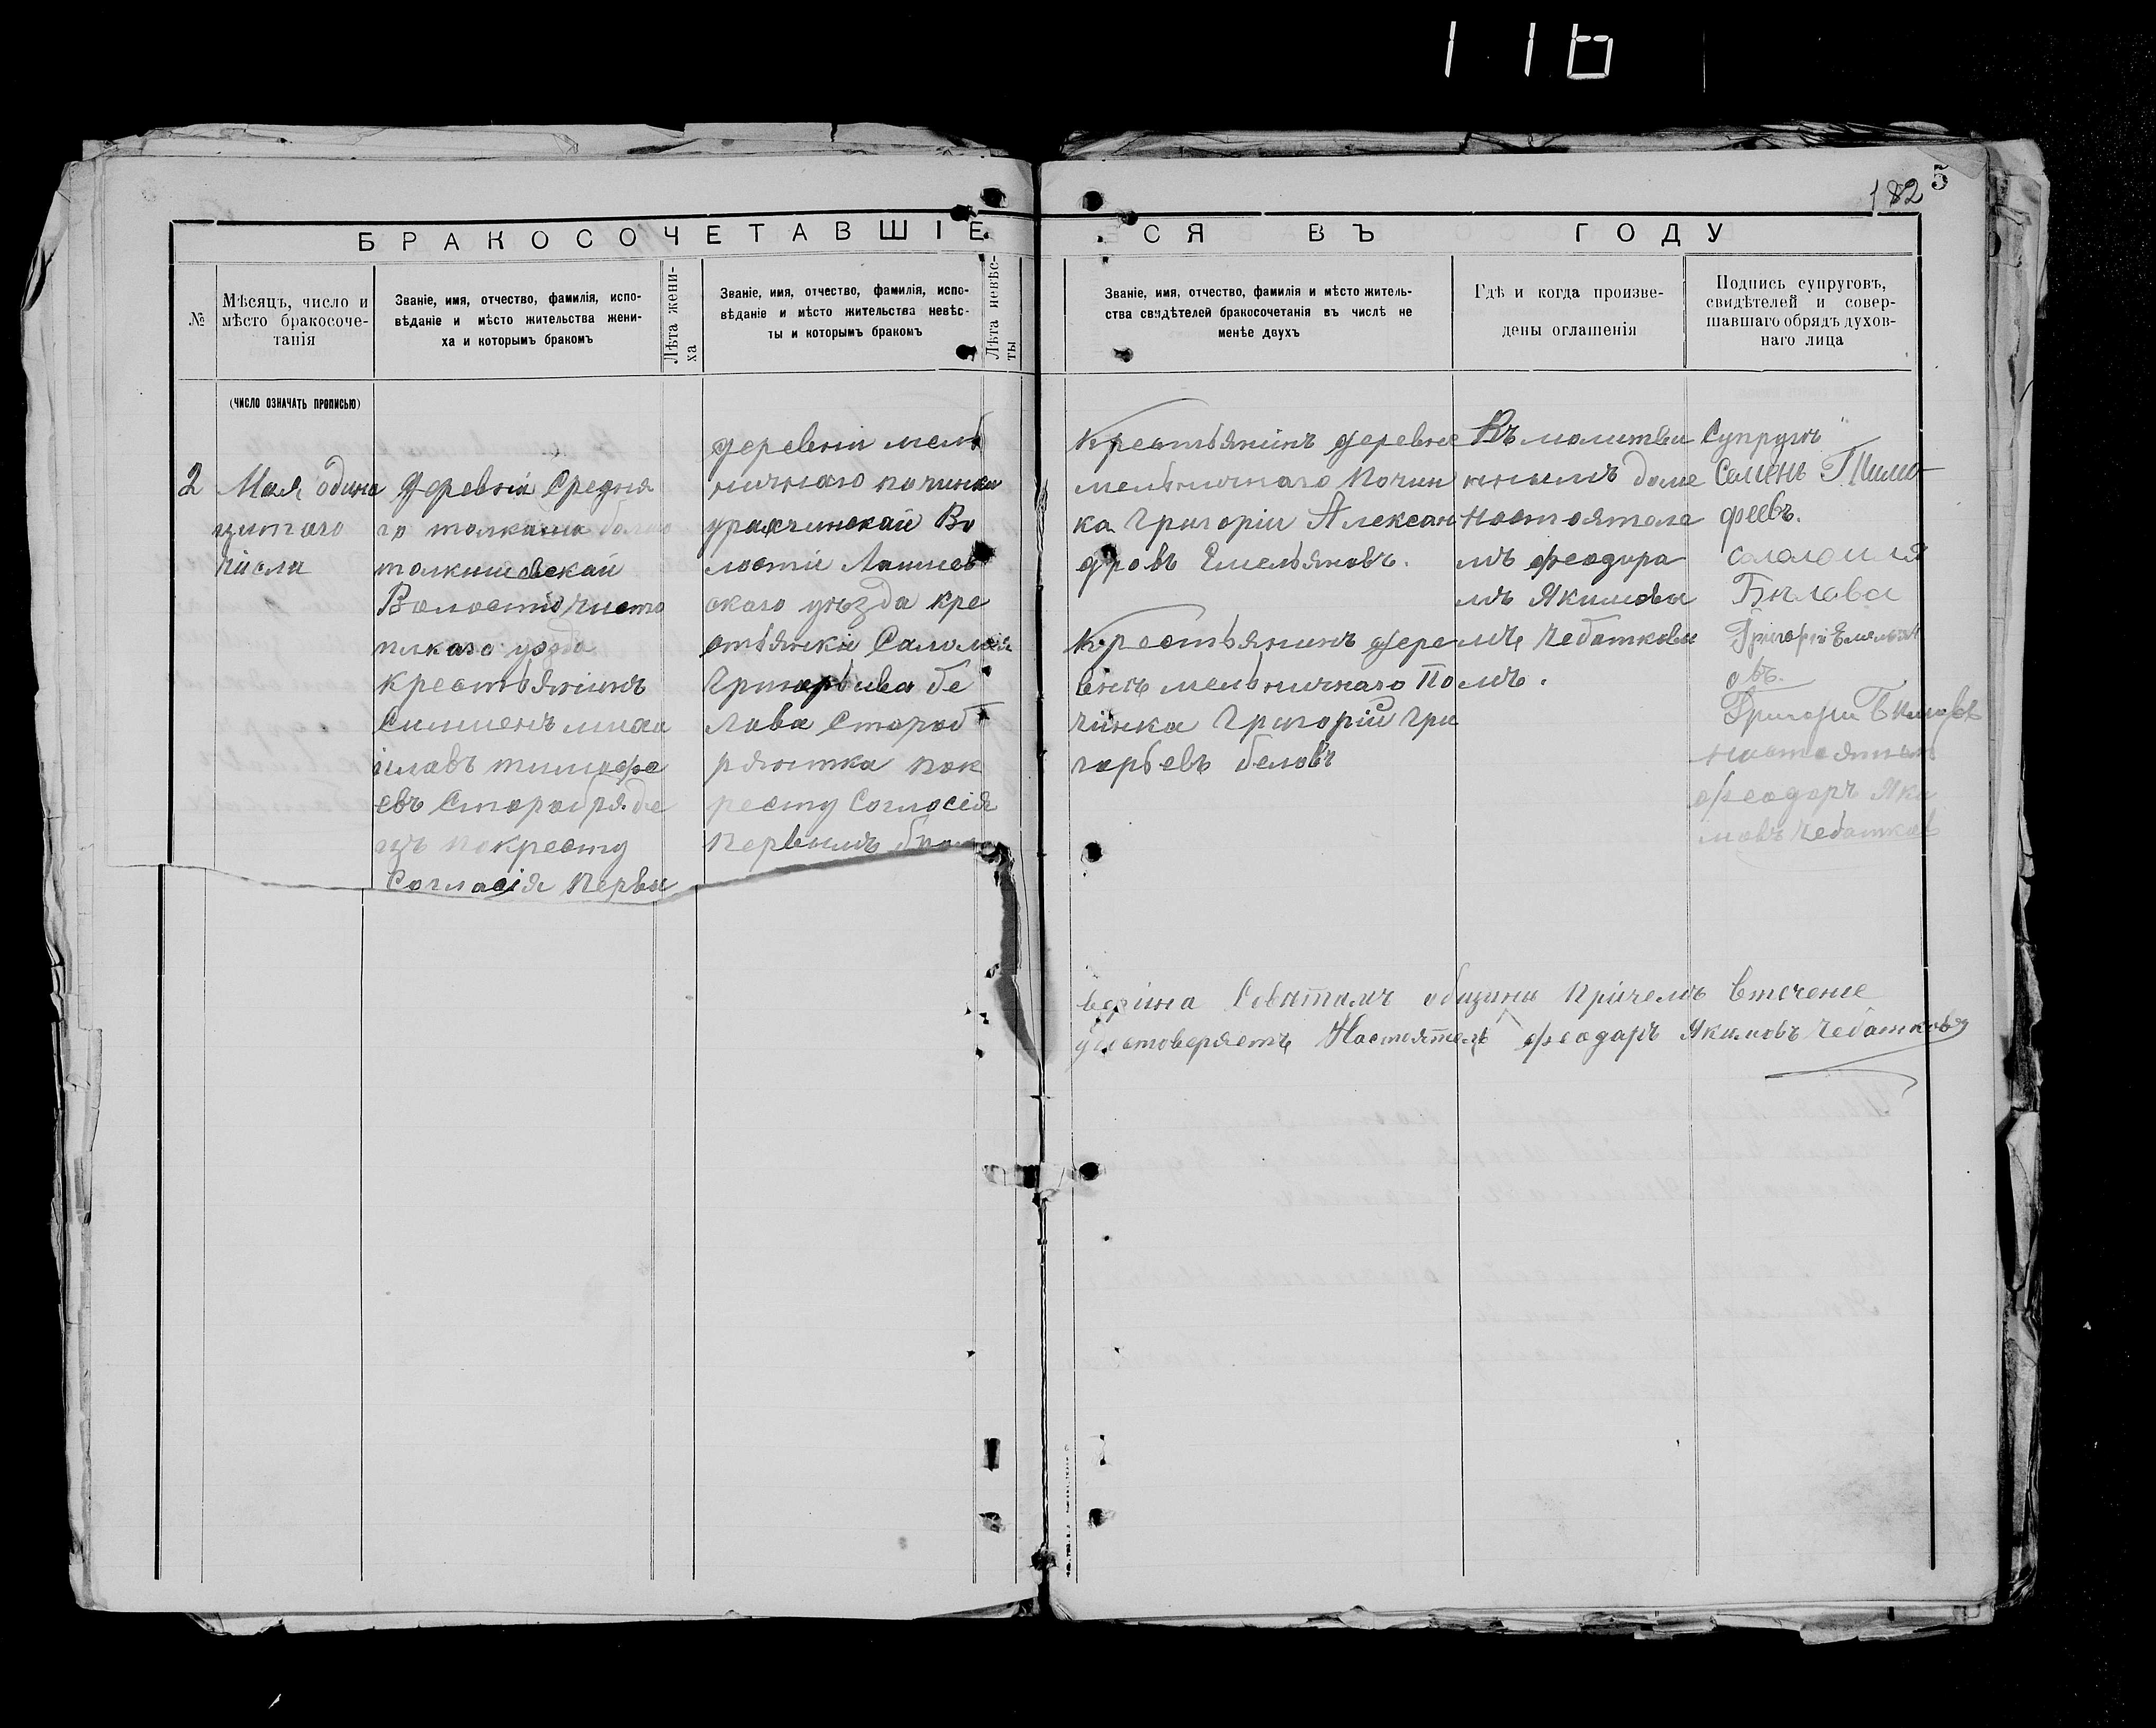 116
182 5
БРАКОСОЧЕТАВШІЕ
СЯ ВЪ ГОДУ
№
Мѣсяцъ, число и
мѣсто бракосоче-
танія
Званіе, имя, отчество, фамилія, испо-
вѣданіе и мѣсто жительства жени-
ха и которымъ бракомъ
Лѣта жени-
ха
Званіе, имя, отчество, фамилія, испо-
вѣданіе и мѣсто жительства невѣс-
ты и которымъ бракомъ
Лѣта невѣс-
ты
Званіе, имя, отчество, фамилія и мѣсто житель-
ства свидѣтелей бракосочетанія въ числѣ не
менѣе двухъ
Гдѣ и когда произве-
дены оглашенія
Подпись супруговъ,
свидѣтелей и совер-
шавшаго обрядъ духов-
наго лица
(число означать прописью)
2
Мая одина
цитаго
числа
Деревни Средня
го толкиша
толкишевскай
Волостіо чисто
пкаго уезда
крестьянинъ
Симменъ миха
иловъ тимофе
евъ Старобря.де
цъ покресту
Согласія первы
деревни мель
ничнаго починка
урахчинскай Во
лостіи Лаишев
скаго уѣзда кре
стьянки Саломия
Григорьива бе
лова Староб
рянтка пок
ресту Согласія
первымъ
Крестьянинъ деревне
мельничнаго Почин
ка Григоріи Алексан
дровъ Емельяновъ.
Крестьянинъ дере
внъ мельничнаго По
чинка Григорій Гри
горьевъ беловъ
Въ молитви
нномъ доме
настоятеле
мъ феодора
мъ Якимовы
мъ Чебатковы
мъ.
Супруги
Семенъ Тимо-
феевъ.
соломия
Бѣлова
Григорій Емелья
овъ.
Григори Беловъ
настоятель
феодоръ Яки
мовъ Чебатков
общины Причемъ втечение
удостоверяетъ Настоятель феодаръ Якимовъ Чебатковъ